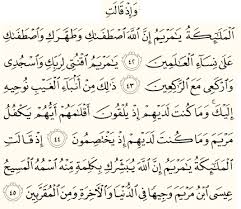 وَإِذْ قَالَتِ
الْمَلَٰٓئِكَةُ يَٰمَرْيَمُ إِنَّ ٱللَّهَ ٱصْطَفَىٰكِ وَطَهَّرَكِ وَٱصْطَفَىٰكِ
عَلَىٰ نِسَآءِ ٱلْعَٰلَمِينَ ٤٢ يَٰمَرْيَمُ ٱقْنُتِى لِرَبِّكِ وَٱسْجُدِى
وَٱرْكَعِى مَعَ ٱلرَّٰكِعِينَ ٤٣ ذَٰلِكَ مِنْ أَنۢبَآءِ ٱلْغَيْبِ نُوحِيهِ
إِلَيْكَ وَمَا كُنتَ لَدَيْهِمْ إِذْ يُلْقُونَ أَقْلَٰمَهُمْ أَيُّهُمْ يَكْفُلُ
مَرْيَمَ وَمَا كُنتَ لَدَيْهِمْ إِذْ يَخْتَصِمُونَ ٤٤ إِذْ قَالَتِ
ٱلْمَلَٰٓئِكَةُ يَٰمَرْيَمُ إِنَّ ٱللَّهَ يُبَشِّرُكِ بِكَلِمَةٍ مِّنْهُ ٱسْمُهُ ٱلْمَسِيحُ
عِيسَى ٱبْنُ مَرْيَمَ وَجِيهًا فِى ٱلدُّنْيَا وَٱلْءَاخِرَةِ وَمِنَ ٱلْمُقَرَّبِينَ ٤٥